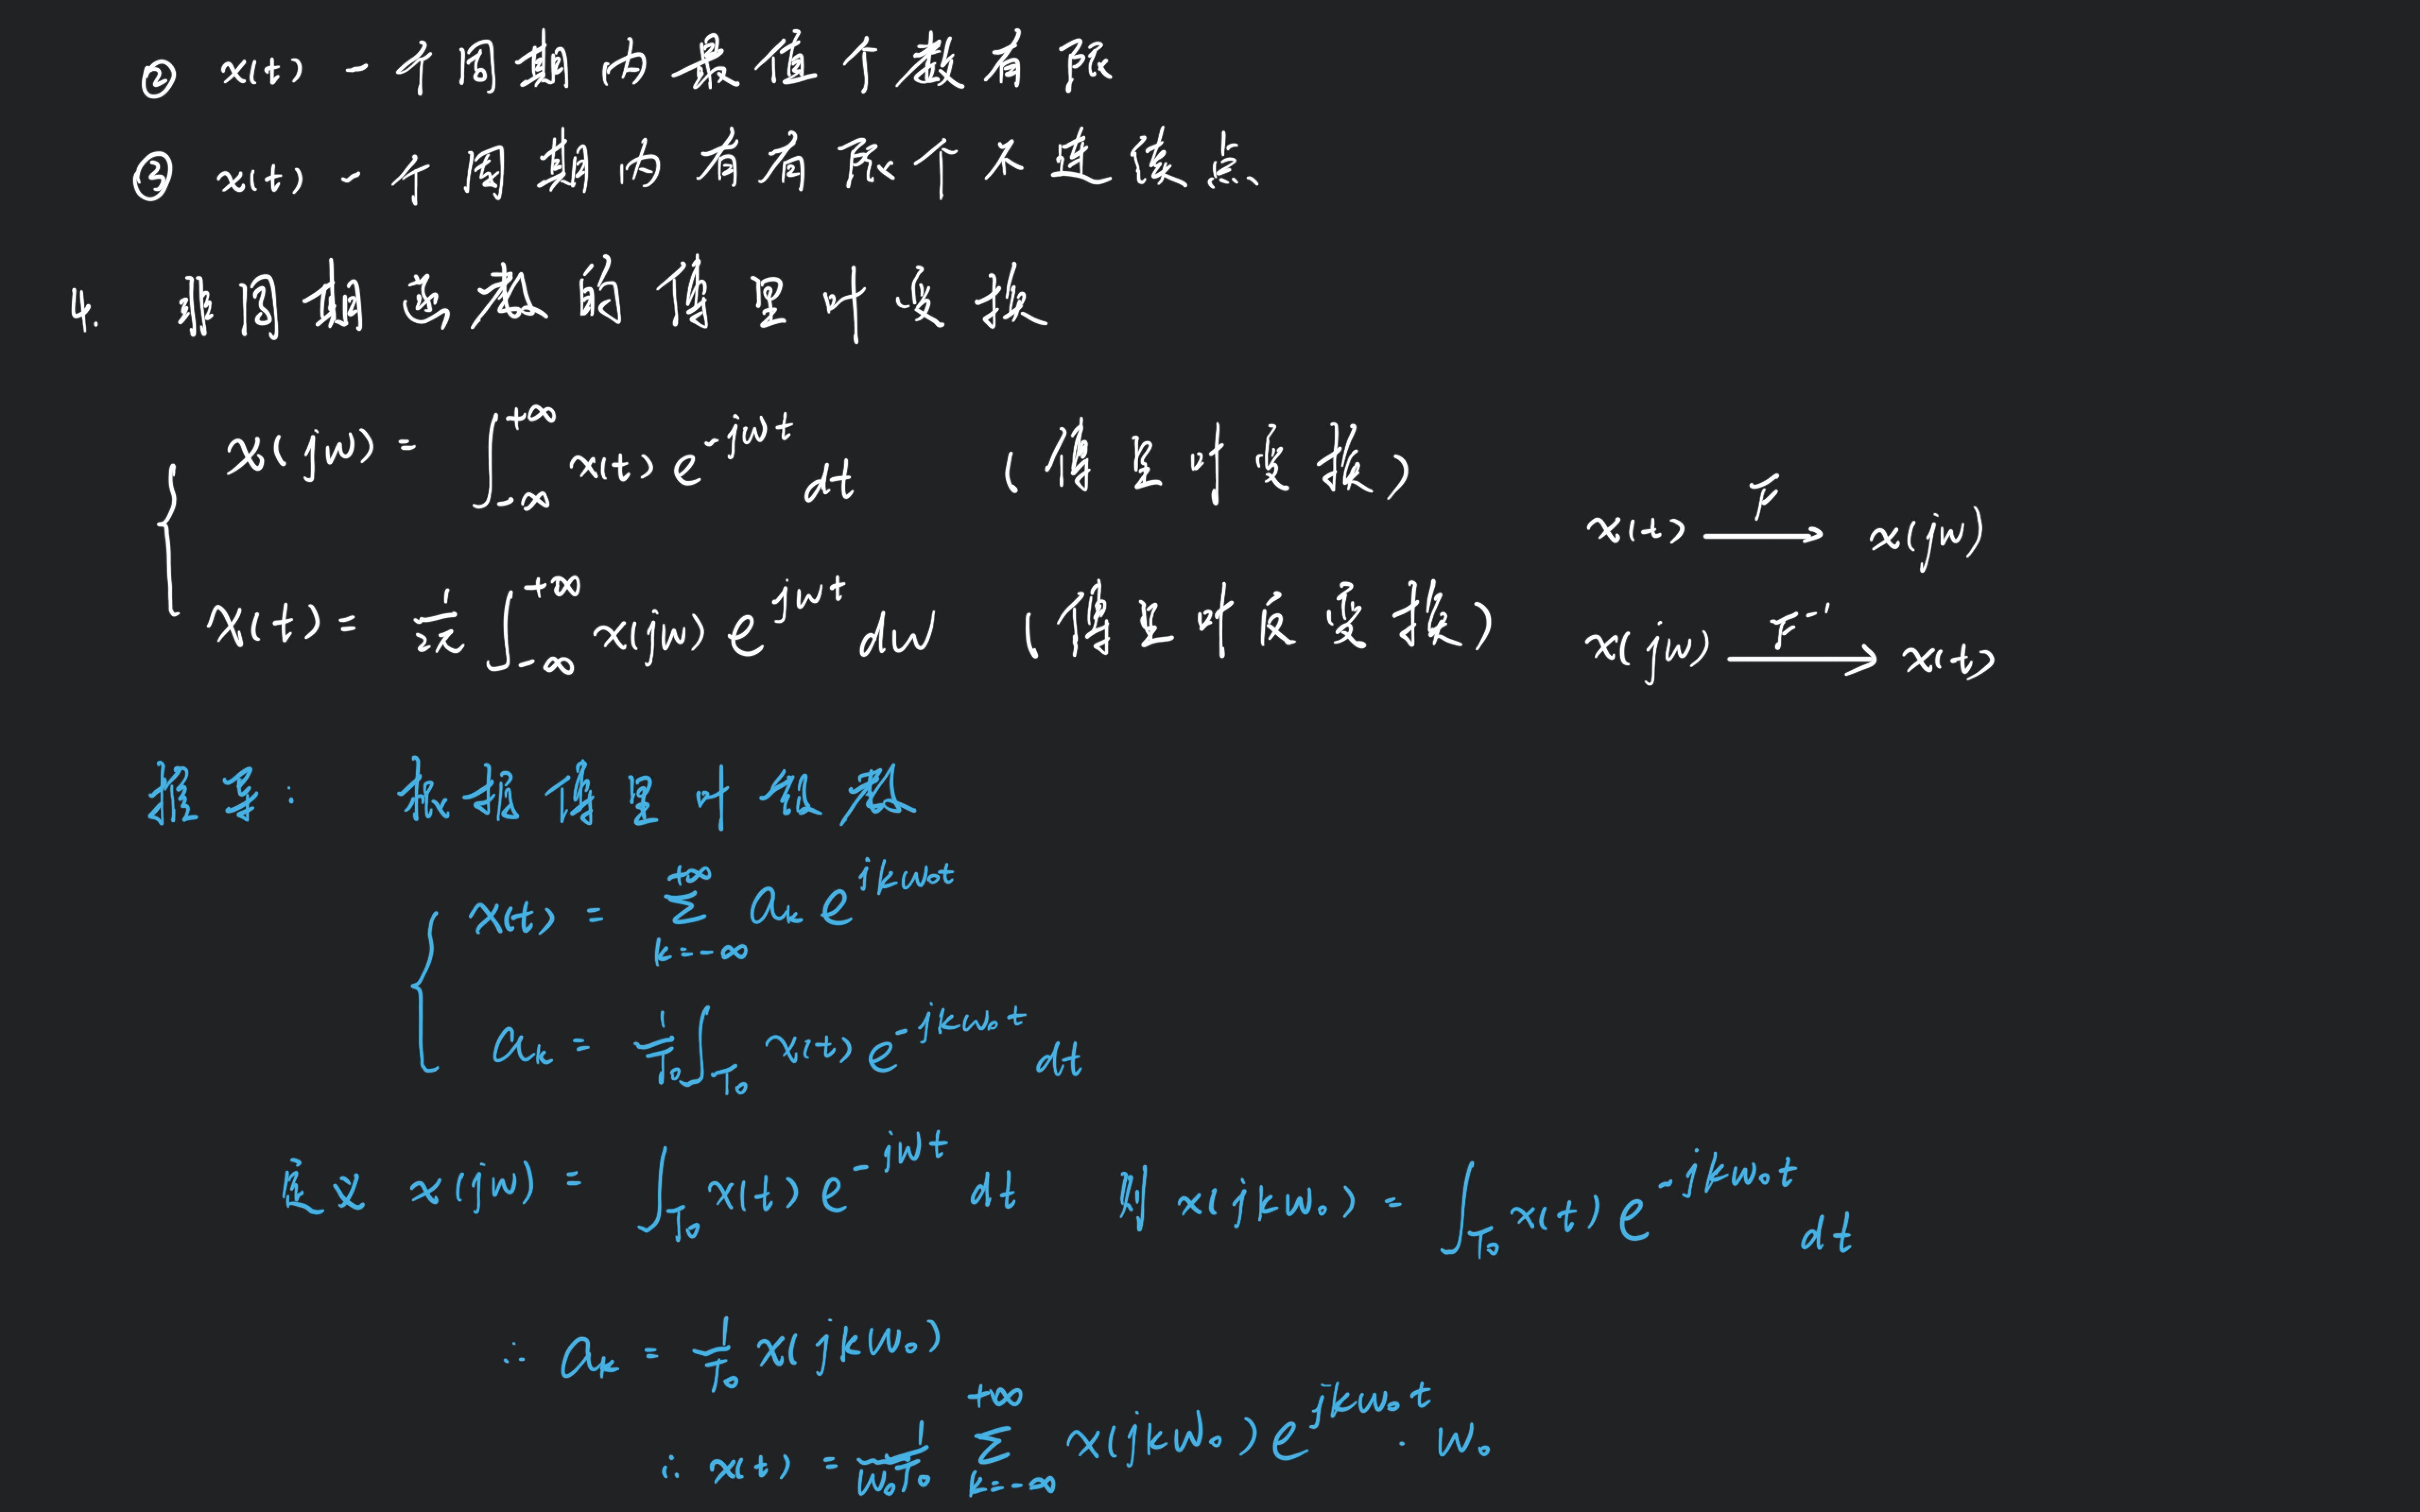 ② x(t) 一个周期内最值个数有限
③ x(t) 一个周期内有有限个不连续点
4. 非周期函数的傅里叶变换
x(jw) = ∫_{-∞}^{+∞} x(t) e^{-jwt} dt （傅里叶变换）
x(t) \xrightarrow{F} x(jw)
x(t) = \frac{1}{2π} ∫_{-∞}^{+∞} x(jw) e^{jwt} dw （傅里叶反变换）
x(jw) \xrightarrow{F^{-1}} x(t)
推导： 根据傅里叶级数
x(t) = \sum_{k=-∞}^{+∞} a_k e^{jkw_0t}
a_k = \frac{1}{T_0} ∫_{T_0} x(t) e^{-jkw_0t} dt
定义 x(jw) = ∫_{T_0} x(t) e^{-jwt} dt 则 x(jkw_0) = ∫_{T_0} x(t) e^{-jkw_0t} dt
∴ a_k = \frac{1}{T_0} x(jkw_0)
∴ x(t) = \frac{1}{w_0T_0} \sum_{k=-∞}^{+∞} x(jkw_0) e^{jkw_0t} · w_0